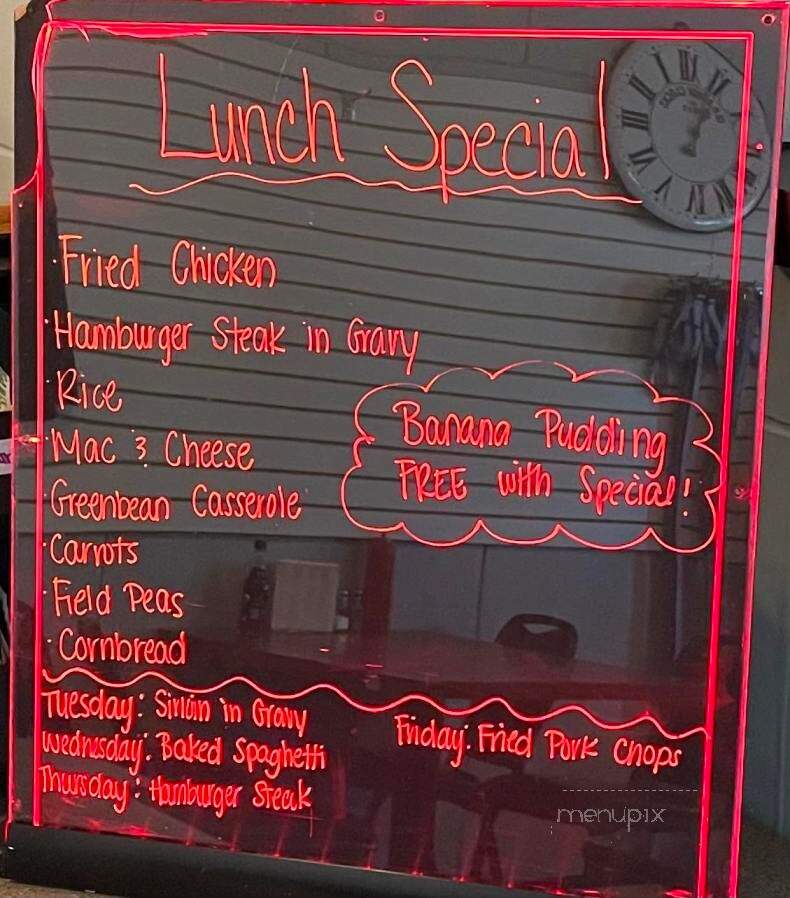 Lunch Special
· Fried Chicken
· Hamburger Steak in Gravy
· Rice
· Mac & Cheese
· Greenbean Casserole
· Carrots
· Field Peas
· Cornbread
Banana Pudding
FREE with Special!
Tuesday: Sirloin in Gravy
Wednesday: Baked Spaghetti
Thursday: Hamburger Steak
Friday: Fried Pork Chops
menupix